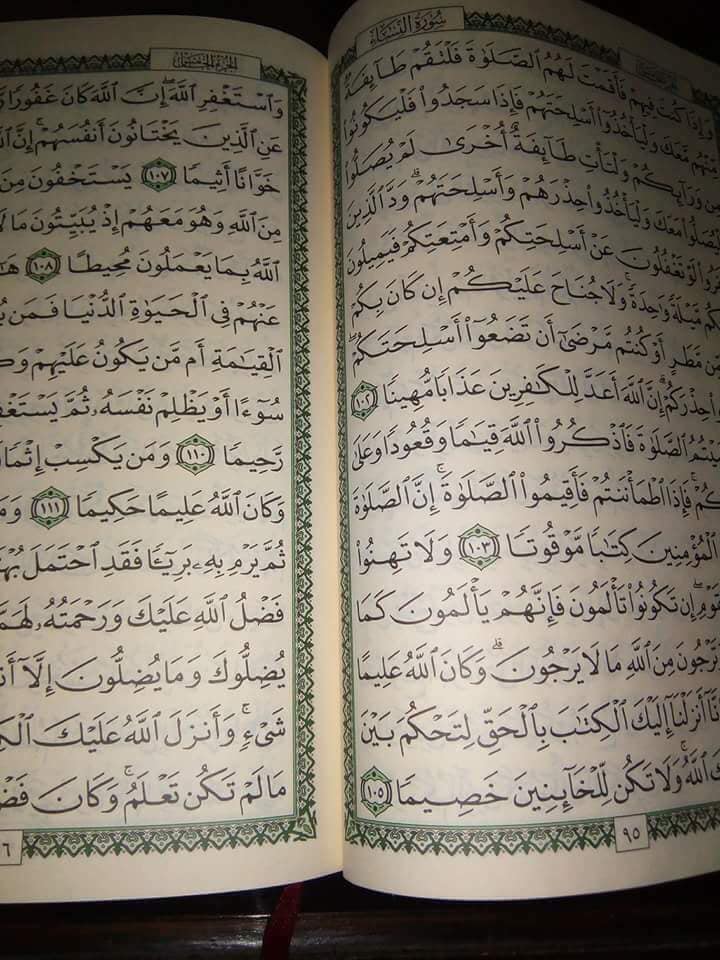 سُورَةُ النِّسَاءِ
وَإِذَا كُنتَ فِيهِمْ فَأَقَمْتَ لَهُمُ الصَّلَوٰةَ فَلْتَقُمْ طَآئِفَةٌ
مِّنْهُم مَّعَكَ وَلْيَأْخُذُوٓا۟ أَسْلِحَتَهُمْ فَإِذَا سَجَدُوا۟ فَلْيَكُونُوا۟
مِن وَرَآئِكُمْ وَلْتَأْتِ طَآئِفَةٌ أُخْرَىٰ لَمْ يُصَلُّوا۟
فَلْيُصَلُّوا۟ مَعَكَ وَلْيَأْخُذُوا۟ حِذْرَهُمْ وَأَسْلِحَتَهُمْ ۗ وَدَّ الَّذِينَ
كَفَرُوا۟ لَوْ تَغْفُلُونَ عَنْ أَسْلِحَتِكُمْ وَأَمْتِعَتِكُمْ فَيَمِيلُونَ
عَلَيْكُم مَّيْلَةً وَٰحِدَةً ۚ وَلَا جُنَاحَ عَلَيْكُمْ إِن كَانَ بِكُمْ
مِّن مَّطَرٍ أَوْ كُنتُم مَّرْضَىٰٓ أَن تَضَعُوٓا۟ أَسْلِحَتَكُمْ ۖ
حِذْرَكُمْ ۗ إِنَّ اللَّهَ أَعَدَّ لِلْكَٰفِرِينَ عَذَابًا مُّهِينًا ١٠٢
قَضَيْتُمُ الصَّلَوٰةَ فَاذْكُرُوا۟ اللَّهَ قِيَٰمًا وَقُعُودًا وَعَلَىٰ
جُنُوبِكُمْ ۚ فَإِذَا اطْمَأْنَنتُمْ فَأَقِيمُوا۟ الصَّلَوٰةَ ۚ إِنَّ الصَّلَوٰةَ
الْمُؤْمِنِينَ كِتَٰبًا مَّوْقُوتًا ١٠٣ وَلَا تَهِنُوا۟
الْقَوْمِ ۖ إِن تَكُونُوا۟ تَأْلَمُونَ فَإِنَّهُمْ يَأْلَمُونَ كَمَا
وَتَرْجُونَ مِنَ اللَّهِ مَا لَا يَرْجُونَ ۗ وَكَانَ اللَّهُ عَلِيمًا
إِنَّآ أَنزَلْنَآ إِلَيْكَ الْكِتَٰبَ بِالْحَقِّ لِتَحْكُمَ بَيْنَ
اللَّهُ ۚ وَلَا تَكُن لِّلْخَآئِنِينَ خَصِيمًا ١٠٥
٩٥
الجزء الخامس
وَاسْتَغْفِرِ اللَّهَ ۖ إِنَّ اللَّهَ كَانَ غَفُورًا
عَنِ الَّذِينَ يَخْتَانُونَ أَنفُسَهُمْ ۚ إِنَّ اللَّهَ
خَوَّانًا أَثِيمًا ١٠٧ يَسْتَخْفُونَ مِنَ
مِنَ اللَّهِ وَهُوَ مَعَهُمْ إِذْ يُبَيِّتُونَ مَا لَا
اللَّهُ بِمَا يَعْمَلُونَ مُحِيطًا ١٠٨
عَنْهُمْ فِى الْحَيَوٰةِ الدُّنْيَا فَمَن
الْقِيَٰمَةِ أَم مَّن يَكُونُ عَلَيْهِمْ
سُوٓءًا أَوْ يَظْلِمْ نَفْسَهُۥ ثُمَّ يَسْتَغْفِرِ
رَّحِيمًا ١١٠ وَمَن يَكْسِبْ إِثْمًا
وَكَانَ اللَّهُ عَلِيمًا حَكِيمًا ١١١
ثُمَّ يَرْمِ بِهِۦ بَرِيٓـًٔا فَقَدِ احْتَمَلَ
فَضْلُ اللَّهِ عَلَيْكَ وَرَحْمَتُهُۥ لَهَمَّت
يُضِلُّوكَ وَمَا يُضِلُّونَ إِلَّآ
شَىْءٍ ۚ وَأَنزَلَ اللَّهُ عَلَيْكَ
مَا لَمْ تَكُن تَعْلَمُ ۚ وَكَانَ فَضْلُ
٦